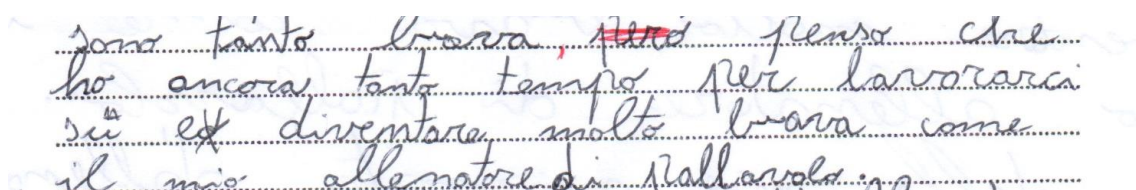 sono tanto brava, però penso che
ho ancora tanto tempo per lavorarci
su e diventare molto brava come
il mio allenatore di pallavolo.